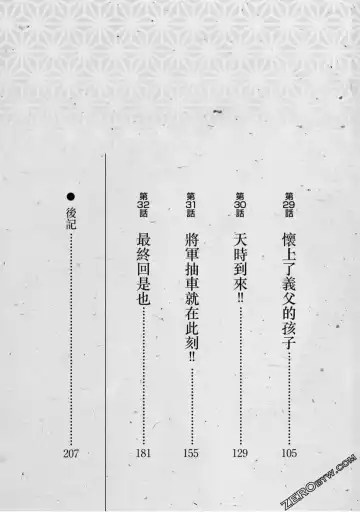 第29話 懷上了義父的孩子 105
第30話 天時到來!! 129
第31話 將軍抽車就在此刻!! 155
第32話 最終回是也 181
●後記 207
ZEROBYW.COM